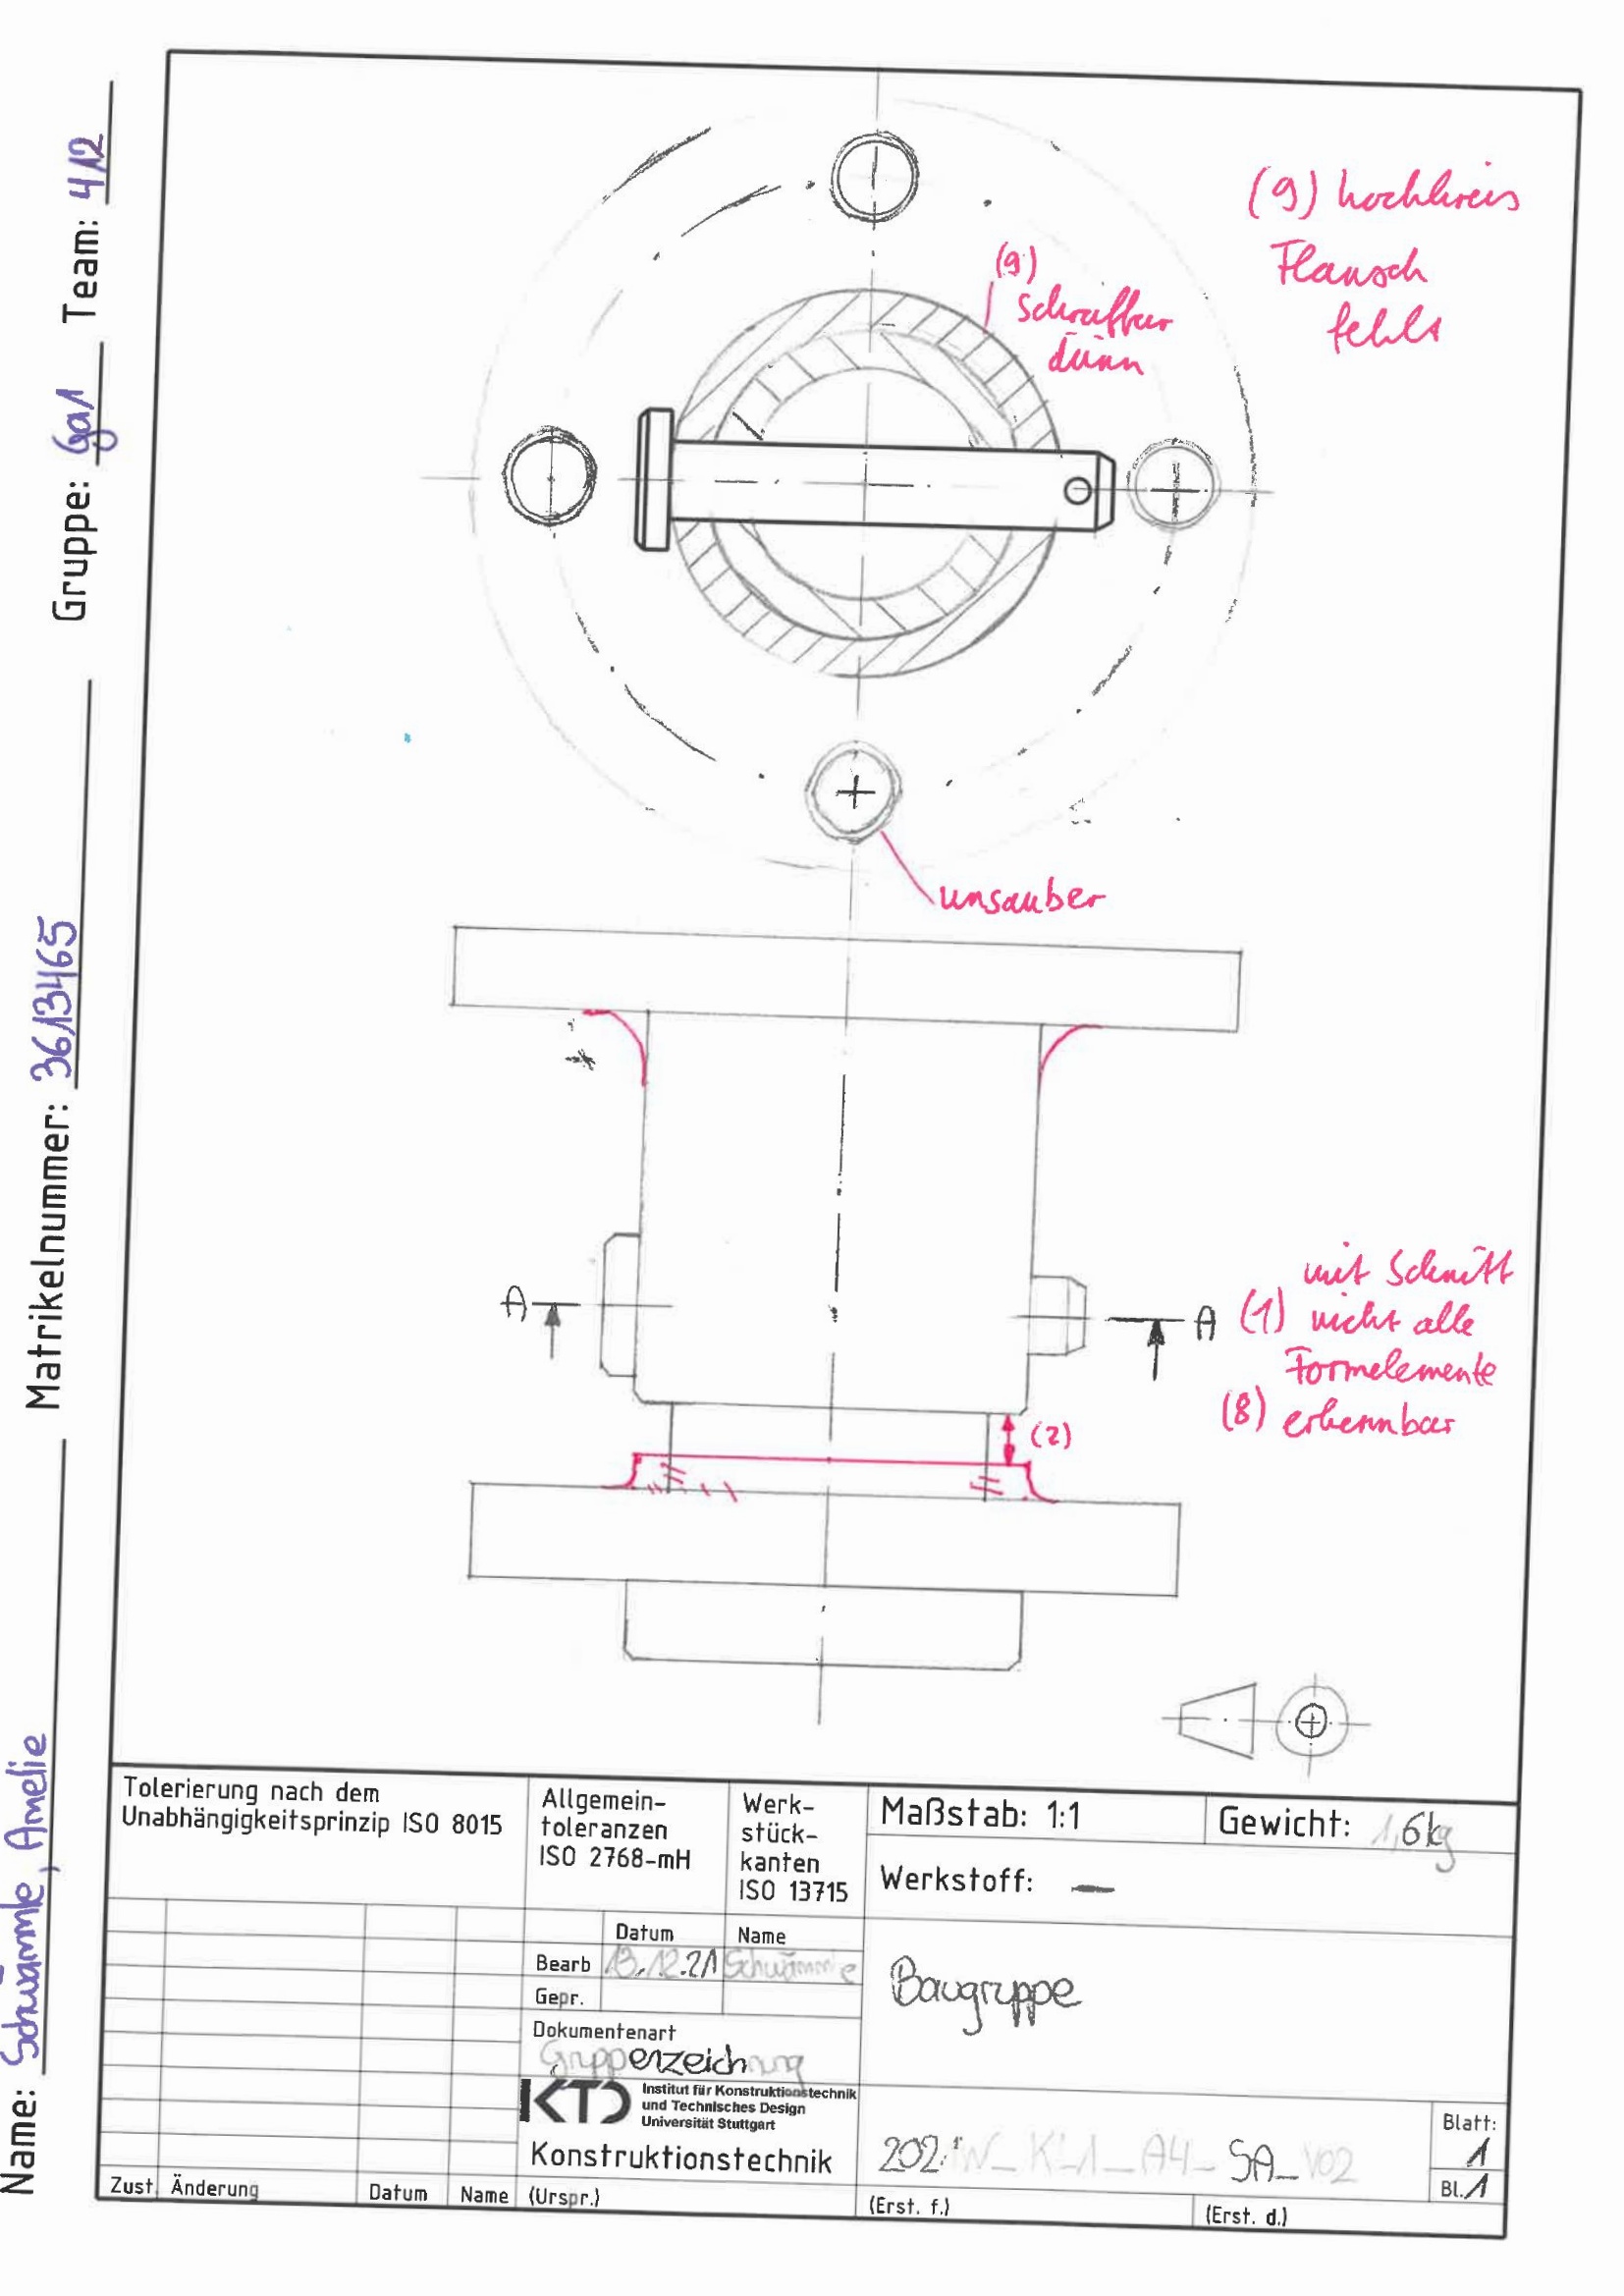 Name: Schwämmle, Amelie Matrikelnummer: 3613465 Gruppe: Ga1 Team: 412
(9) Lochkreis
Flansch
fehlt
(9)
schraffur
dünn
unsauber
A
A
mit Schnitt
(1) nicht alle
Formelemente
(8) erkennbar
(2)
Tolerierung nach dem
Unabhängigkeitsprinzip ISO 8015
Allgemein-
toleranzen
ISO 2768-mH
Werk-
stück-
kanten
ISO 13715
Maßstab: 1:1
Gewicht: 1,6kg
Werkstoff: –
Datum Name
Bearb 13.12.21 Schwämmle
Gepr.
Baugruppe
Dokumentenart
Gruppenzeichnung
IKTD
Institut für Konstruktionstechnik
und Technisches Design
Universität Stuttgart
Konstruktionstechnik
2021W_KL1_A4_SA_V02
Blatt:
1
Bl.1
Zust. Änderung Datum Name (Urspr.) (Erst. f.) (Erst. d.)